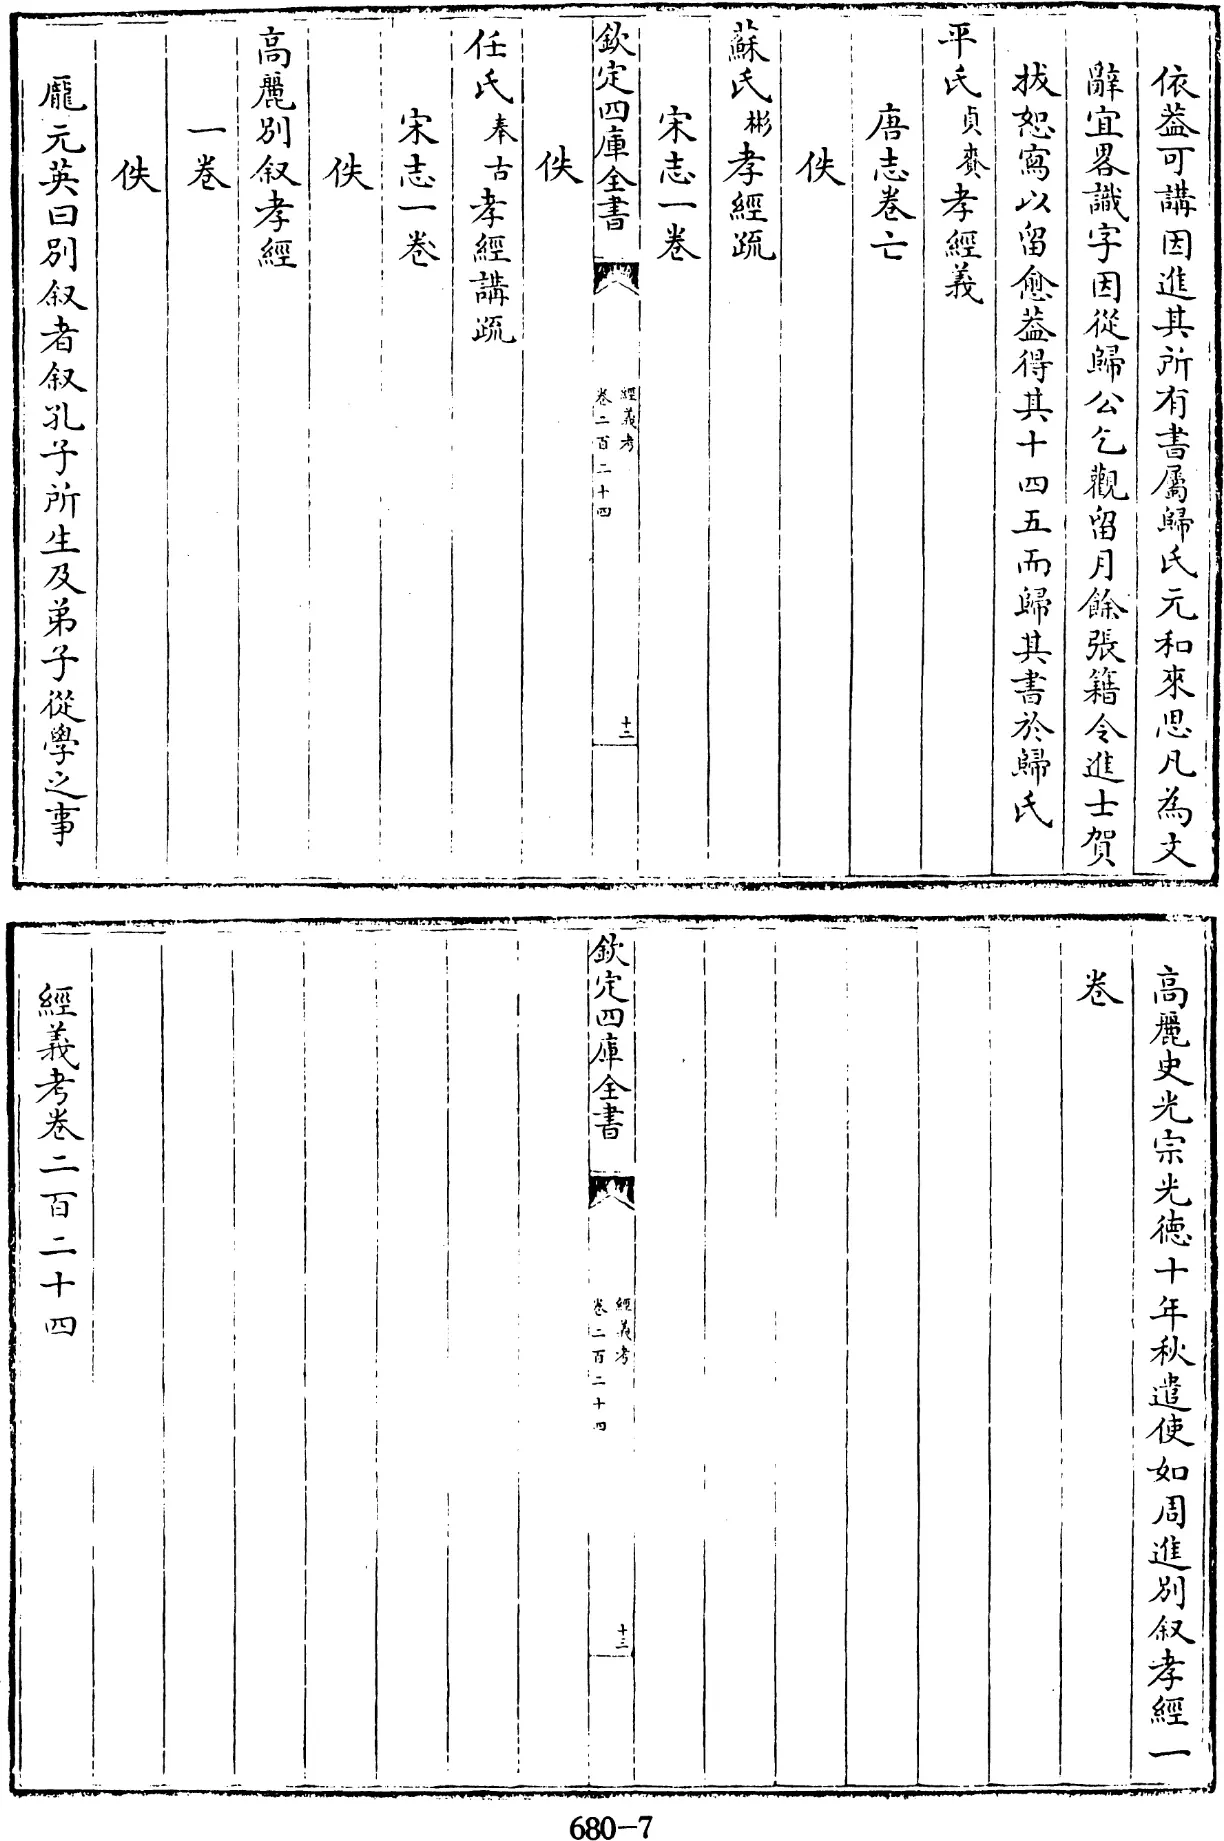 依葢可講因進其所有書屬歸氏元和來思凡為文
辭宜畧識字因從歸公乞觀留月餘張籍令進士賀
拔恕寫以留愈葢得其十四五而歸其書於歸氏
平氏貞眘孝經義
唐志卷亡
佚
蘇氏彬孝經疏
宋志一卷
欽定四庫全書
經義考
卷二百二十四
十二
佚
任氏奉古孝經講疏
宋志一卷
佚
高麗別叙孝經
一卷
佚
龎元英曰別叙者叙孔子所生及弟子從學之事
高麗史光宗光徳十年秋遣使如周進別叙孝經一
卷
欽定四庫全書
經義考
卷二百二十四
十三
經義考卷二百二十四
680-7